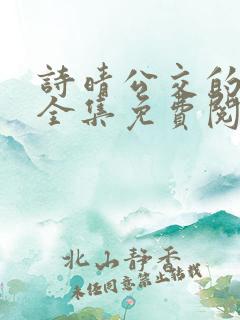 詩晴公交的
全集免費閱
北山靜香
未经同意禁止转载